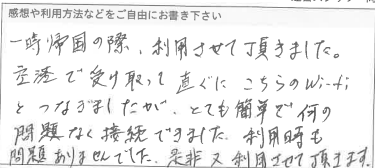 感想や利用方法などをご自由にお書き下さい
一時帰国の際、利用させて頂きました。
空港で受け取って直ぐにこちらのWi-Fi
とつなぎましたが、とても簡単で何の
問題なく接続できました。利用時も
問題ありませんでした。是非又利用させて頂きます。